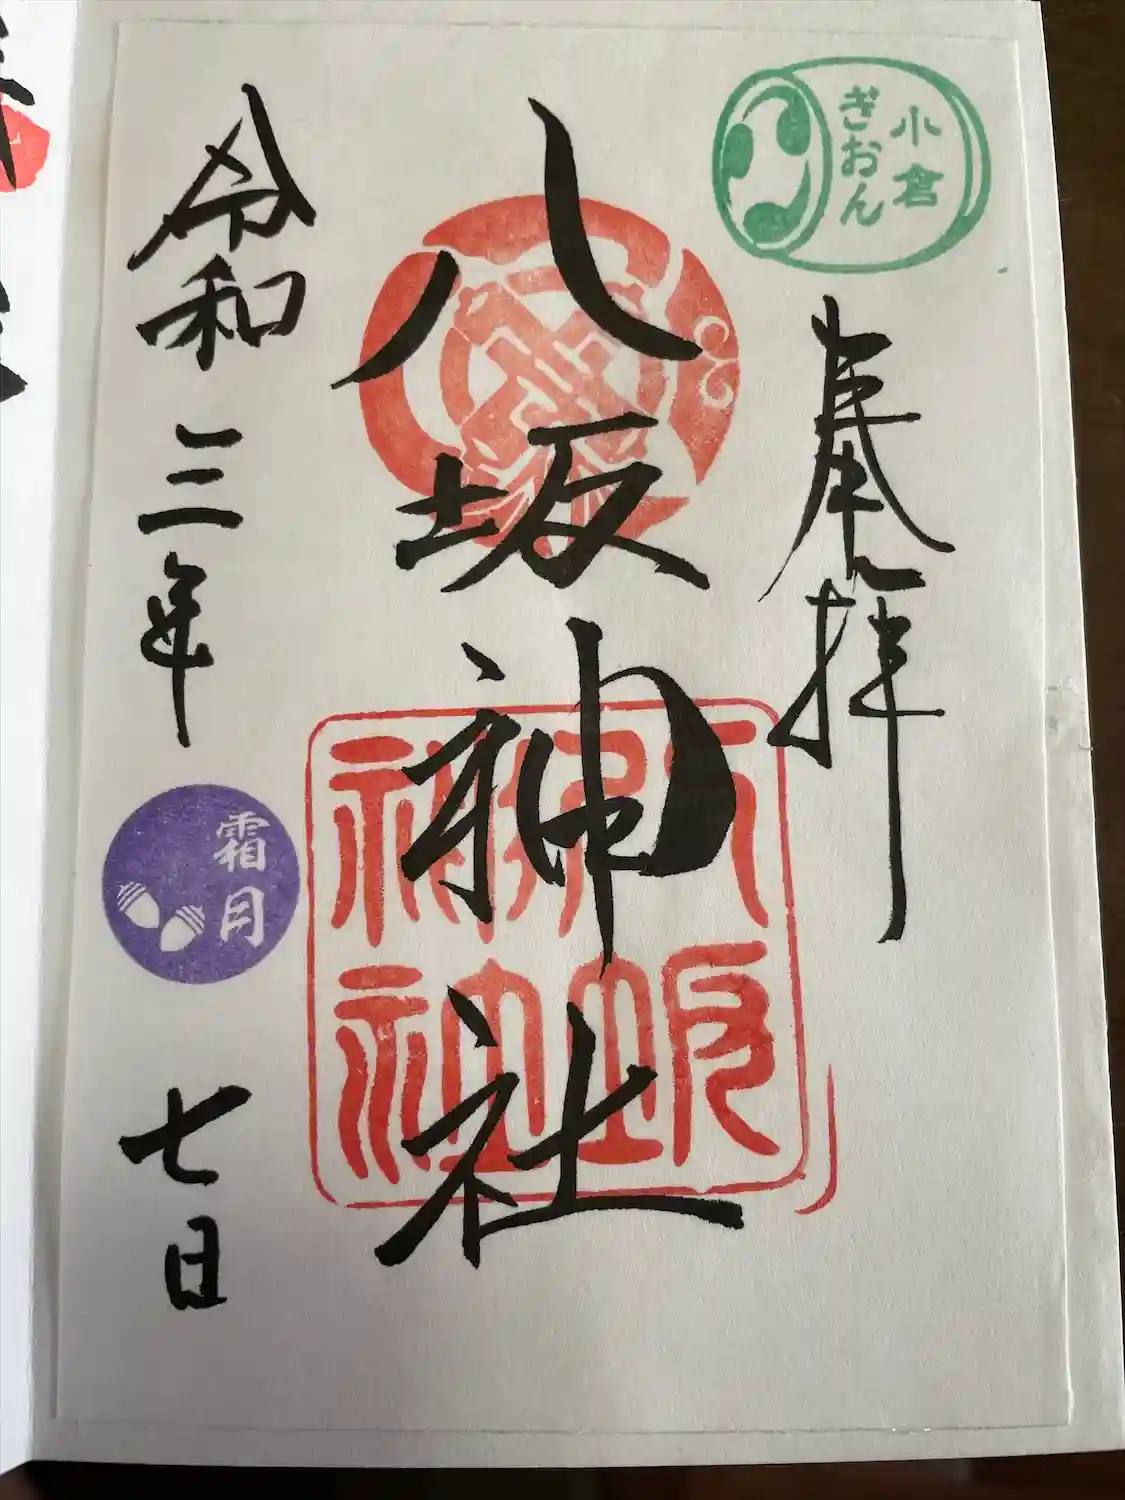 小倉
ぎおん
奉拝
八坂神社
八坂
神社
令和三年
霜月
七日